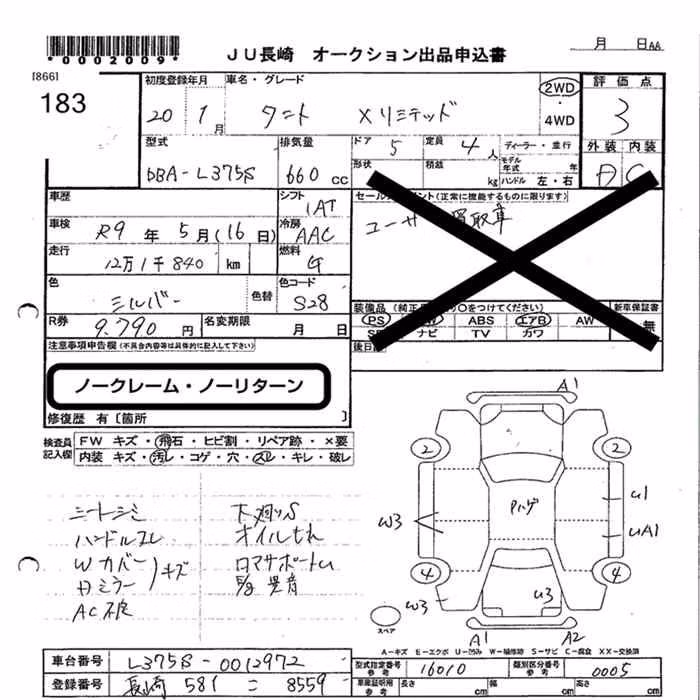 *0002009*
JU長崎 オークション出品申込書
月 日AA
[866]
183
初度登録年月 車名・グレード 2WD・4WD 評価点
20年 1月 タント Xリミテッド 3
型式 排気量 ドア 5 定員 4人 ディーラー・並行 外装 内装
DBA-L375S 660cc 形状 積載 kg モデル年式 年 ハンドル 左・右 D C
車歴 シフト IAT
車検 R9年5月(16日) 冷房 AAC
走行 12万1千840 km 燃料 G
色 シルバー 色替 色コード S28
R券 9,790円 名変期限 月 日
セールスポイント(正常に機能するものに限ります)
ユーザー買取車
装備品 新車保証書
PS ABS エアB AW 無
ナビ TV カワ
後日
注意事項申告欄(不具合内容等は具体的に記入して下さい)
ノークレーム・ノーリターン
修復歴 有〔箇所 〕
検査員記入欄 FW キズ・飛石・ヒビ割・リペア跡・×要
内装 キズ・汚レ・コゲ・穴・スレ・キレ・破レ
シートシミ
ハンドルスレ
Wカバー
ドミラー キズ
AC不良
下廻りS
オイルもれ
ロアサポートU
E/g異音
A1
2 2
Pハゲ
W3
U1
UA1
4 4
W3
U3
スペア
A1 A2
A-キズ E-エクボ U-凹み W-補修跡 S-サビ C-腐食 XX-交換済
車台番号 L375S-0012972
登録番号 長崎 581 こ 8559
型式指定番号 参考 16010 類別区分番号 参考 0005
車庫証明用 参考 長さ cm 幅 cm 高さ cm